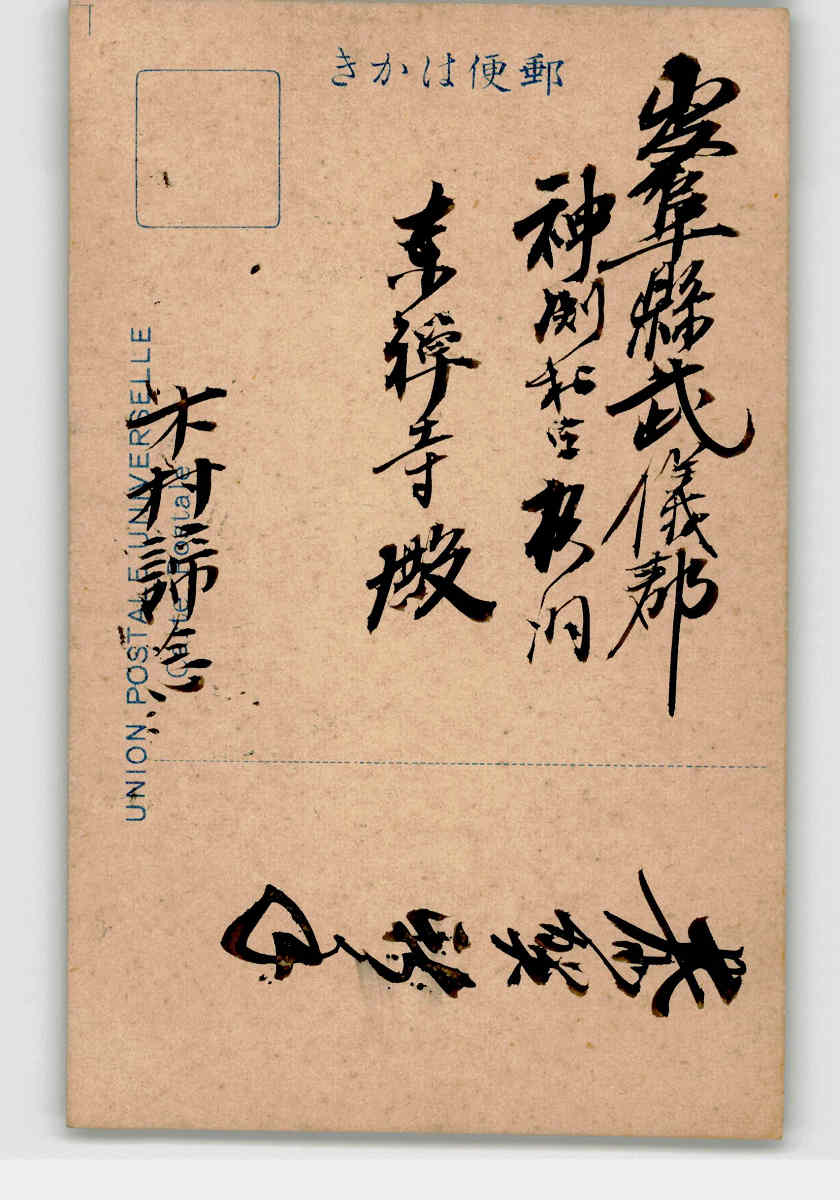 郵便はかき
岐阜縣武儀郡
神渕村字杉洞
東禅寺殿
木村諦念
UNION POSTALE UNIVERSELLE
Carte Postale